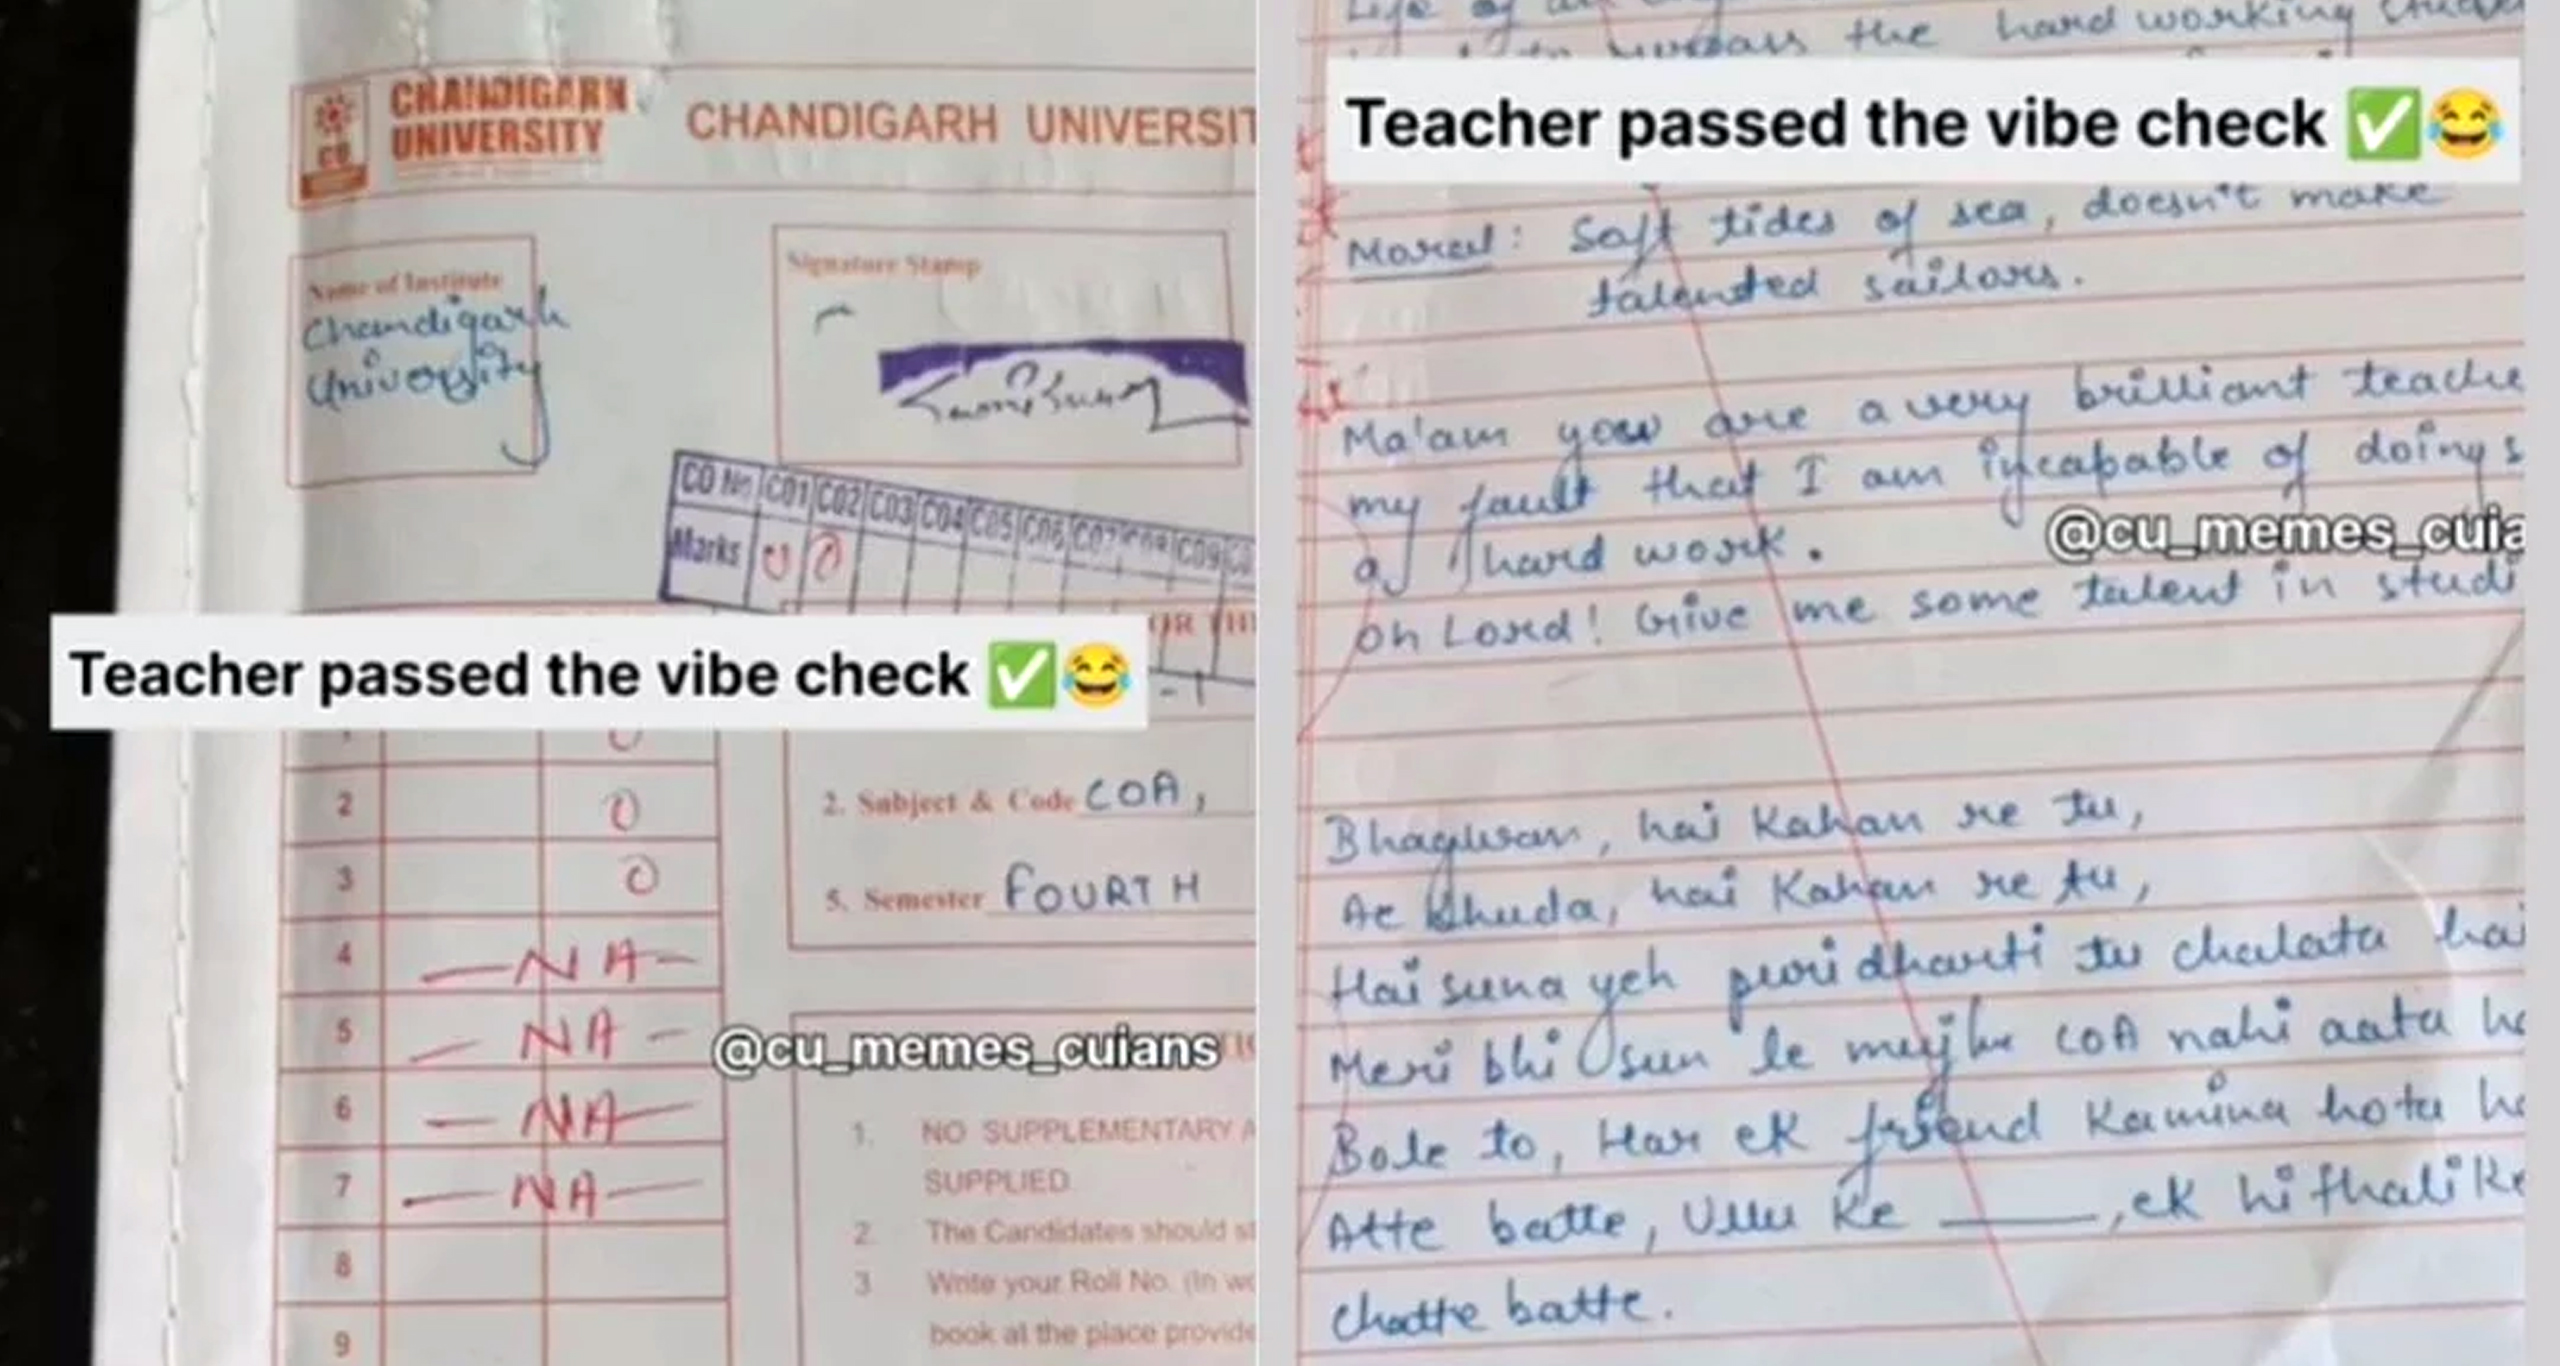 CHANDIGARH
UNIVERSITY
CHANDIGARH UNIVERSIT
Name of Institute
Chandigarh
University
Signature Stamp
CO No CO1 CO2 CO3 CO4 CO5 CO6 CO7 CO8 CO9 CO
Marks 0 0
OR TH
Teacher passed the vibe check ✅😂
1 0
2 0
3 0
4 —NA—
5 —NA—
6 —NA—
7 —NA—
8
9
2. Subject & Code COA,
5. Semester FOURTH
@cu_memes_cuians
1. NO SUPPLEMENTARY A
SUPPLIED
2. The Candidates should st
3 Write your Roll No. (In wo
book at the place provide
Life of
the hard working
Teacher passed the vibe check ✅😂
Moral: Soft tides of sea, doesn't make
talented sailors.
Ma'am you are a very brilliant teache
my fault that I am incapable of doing s
of hard work.
@cu_memes_cuia
Oh Lord! Give me some talent in studi
Bhagwan, hai Kahan re tu,
Ae Khuda, hai Kahan re tu,
Hai suna yeh puri dharti tu chalata hai
Meri bhi sun le mujhe COA nahi aata ha
Bole to, Har ek friend Kamina hota ha
Atte batte, Ullu Ke ____, ek hi thali Ke
chatte batte.